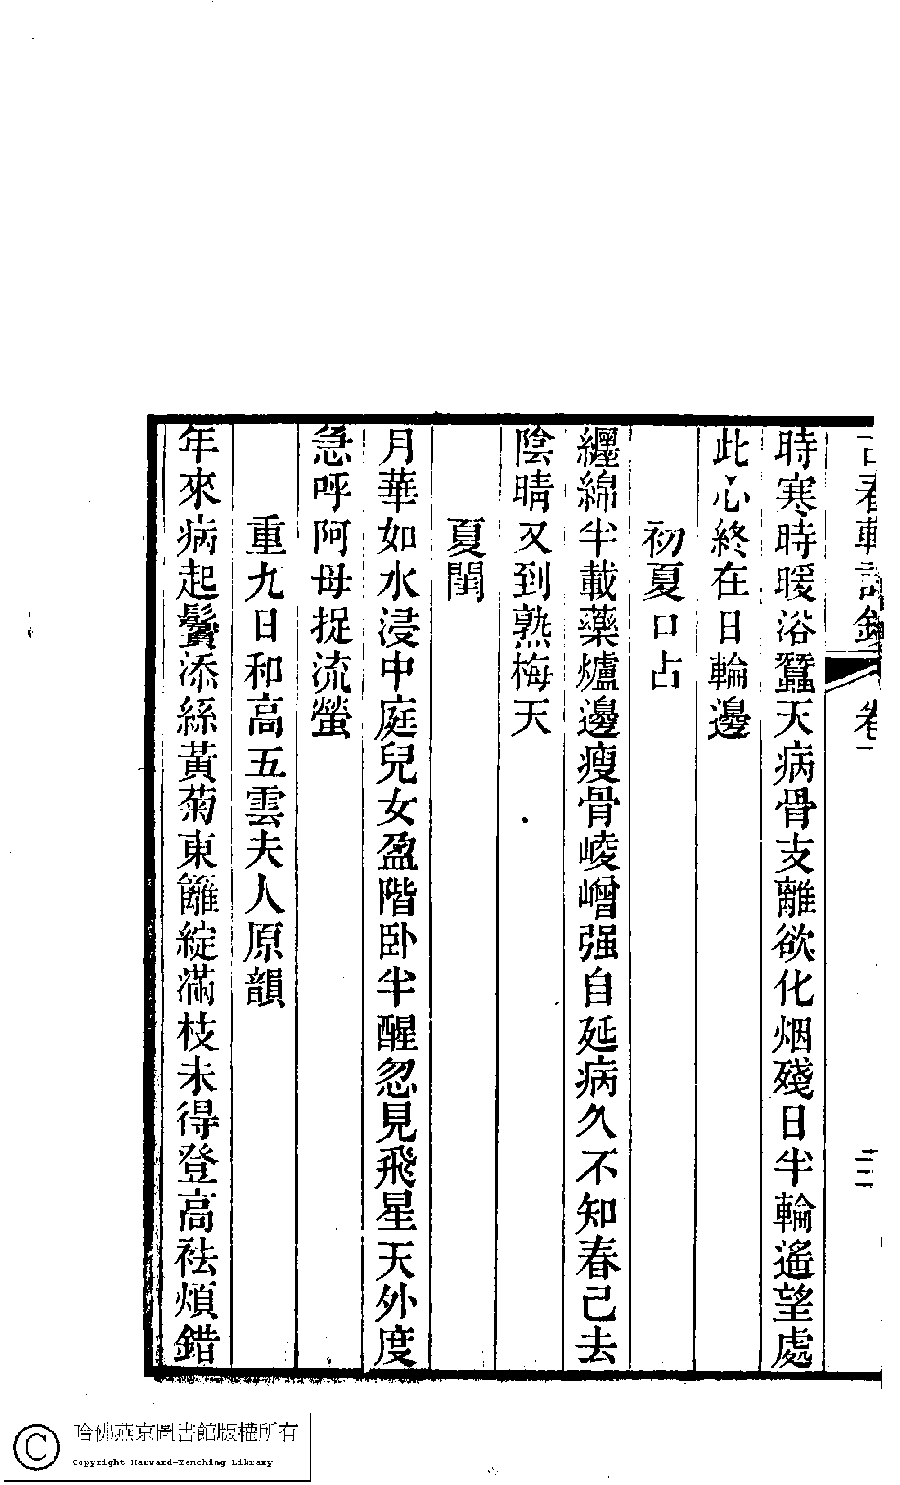 古春軒詩鈔 卷
時寒時暖浴蠶天病骨支離欲化烟殘日半輪遙望處
此心終在日輪邊
初夏口占
纏綿半載藥爐邊瘦骨崚嶒强自延病久不知春己去
陰晴又到熟梅天
夏閨
月華如水浸中庭兒女盈階卧半醒忽見飛星天外度
急呼阿母捉流螢
重九日和高五雲夫人原韻
年來病起鬢添絲黃菊東籬綻滿枝未得登高祛煩錯
哈佛燕京圖書館版權所有
Copyright Harvard-Yenching Library